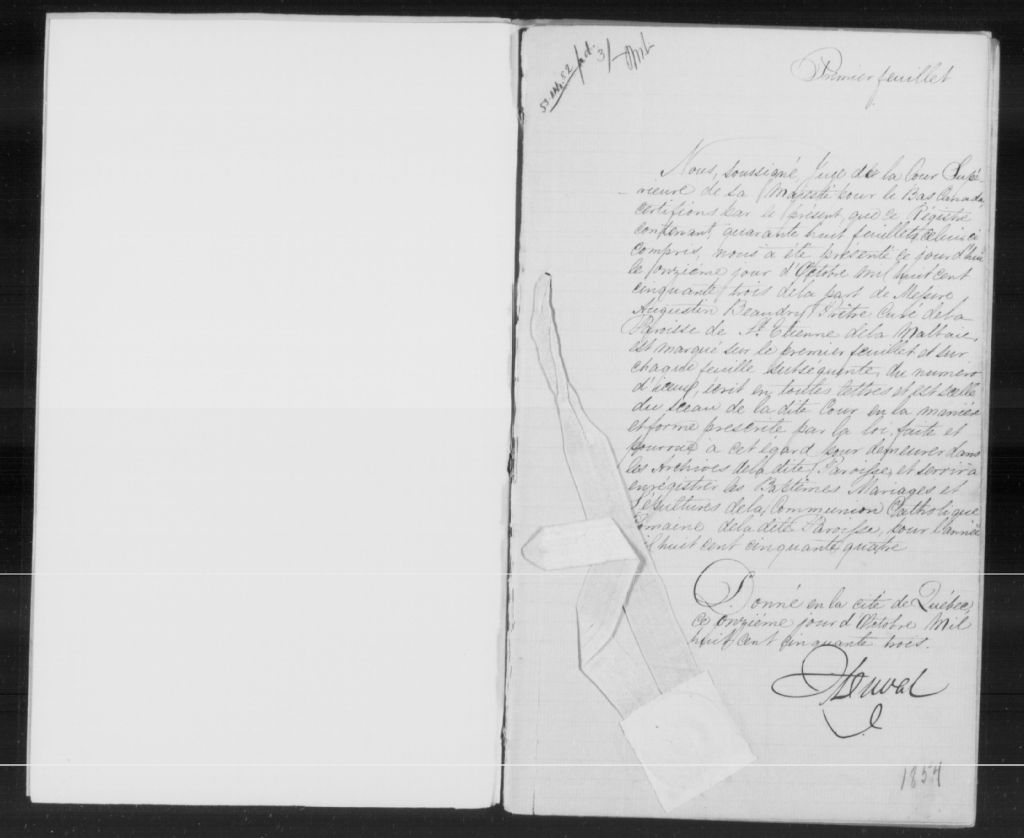 3/-
Premier feuillet
Nous, soussigné Juge de la Cour Supé
-rieure de sa Majesté pour le Bas Canada,
certifions par le présent, que ce Régistre
contenant quarante huit feuillets celui ci
compris, nous a été présenté ce jourd'hui
le onzième jour d'Octobre mil huit cent
cinquante trois de la part de Messire
Augustin Beaudry Prêtre Curé de la
Paroisse de St. Etienne de la Malbaie,
est marqué sur le premier feuillet et sur
chaque feuille subséquente, du numero
d'iceux, écrit en toutes lettres et est scellé
du sceau de la dite Cour en la manière
et forme prescrite par la loi, faite et
pourvue à cet égard pour demeurer dans
les Archives de la dite Paroisse, et servir à
enrégistrer les Baptêmes Mariages et
Sépultures de la Communion Catholique
Romaine de la dite Paroisse, pour l'année
mil huit cent cinquante quatre
Donné en la cité de Québec,
ce onzième jour d'Octobre Mil
huit cent cinquante trois.
Duval
1854